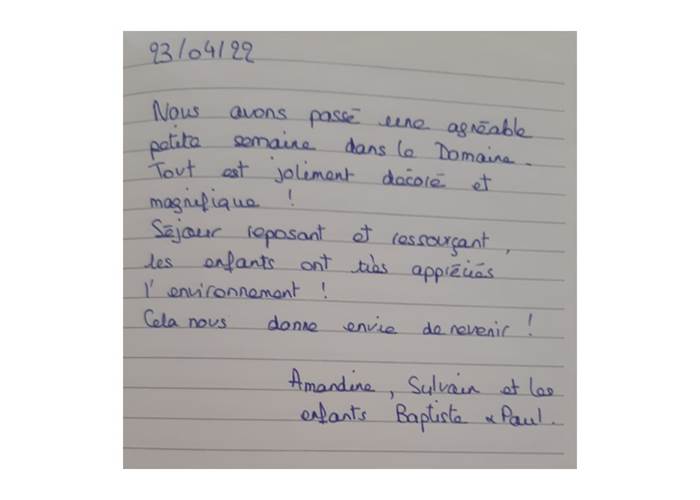 23/04/22
Nous avons passé une agréable
petite semaine dans le Domaine.
Tout est joliment décoré et
magnifique !
Séjour reposant et ressourçant,
les enfants ont très appréciés
l'environnement !
Cela nous donne envie de revenir !
Amandine, Sylvain et les
enfants Baptiste & Paul.